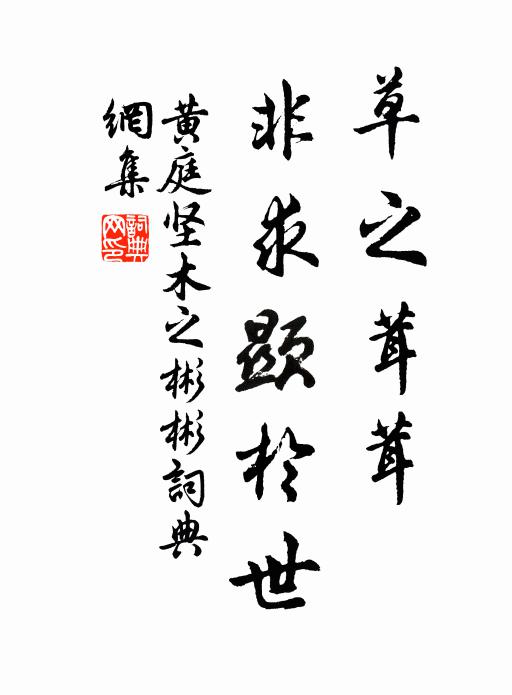 草之茸茸
非求顯於世
黄庭坚木之彬彬詞典
網集
詞典网印